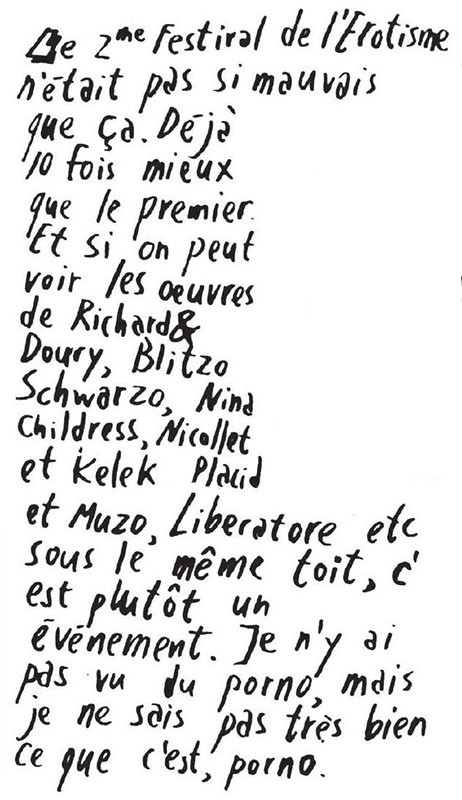 Le 2me Festival de l'Erotisme
n'était pas si mauvais
que ça. Déjà
10 fois mieux
que le premier.
Et si on peut
voir les oeuvres
de Richard &
Doury, Blitzo
Schwarzo, Nina
Childress, Nicollet
et Kelek Placid
et Muzo, Liberatore etc
sous le même toit, c'
est plutôt un
événement. Je n'y ai
pas vu du porno, mais
je ne sais pas très bien
ce que c'est, porno.